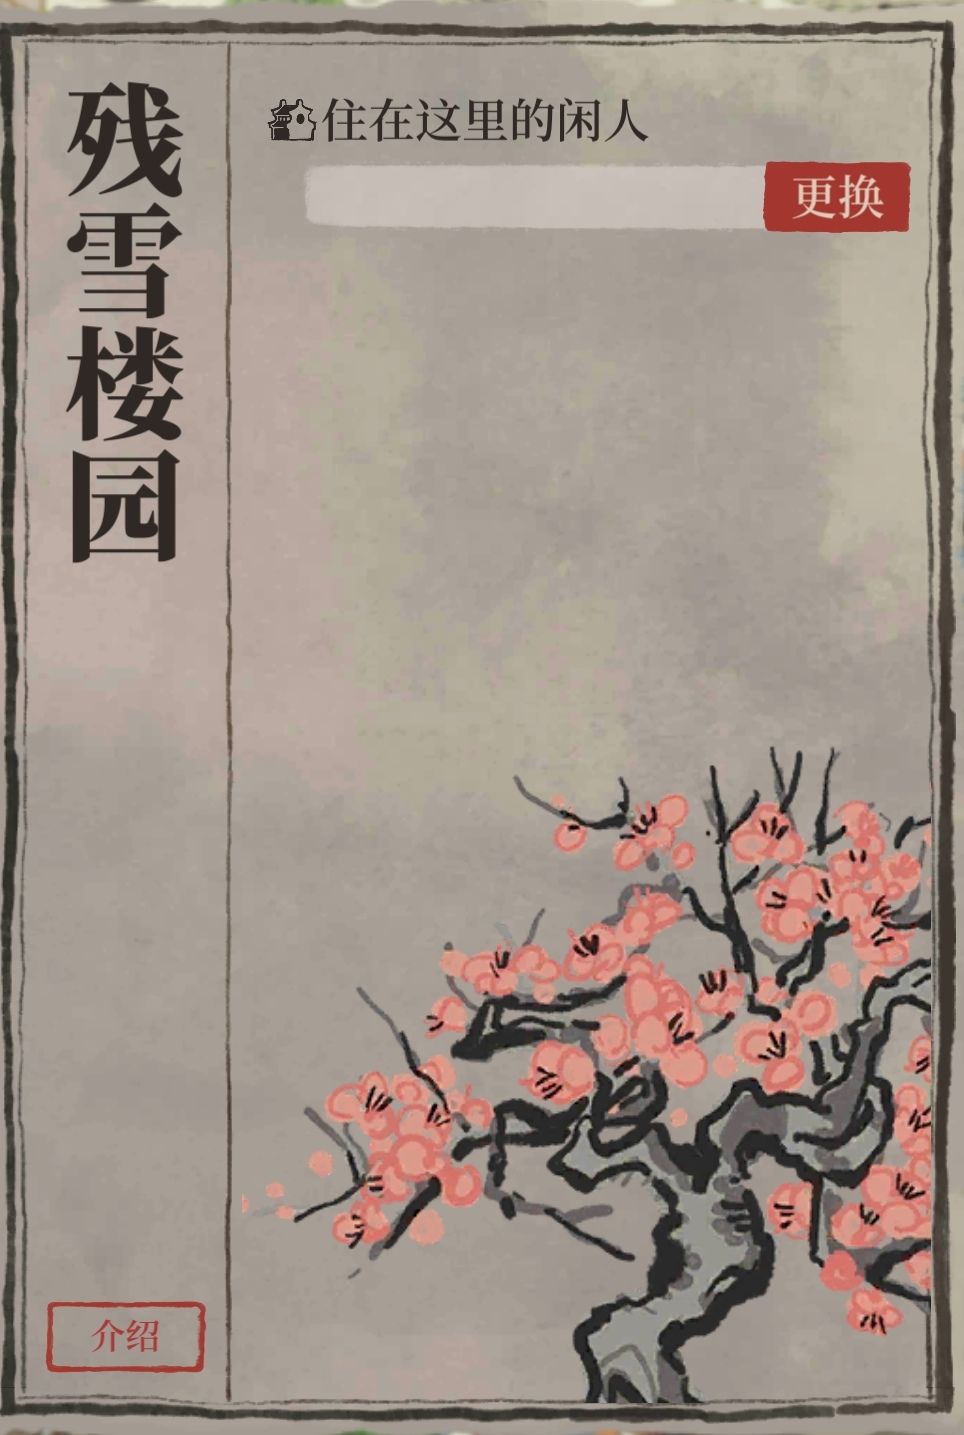 残雪楼园
住在这里的闲人
更换
介绍